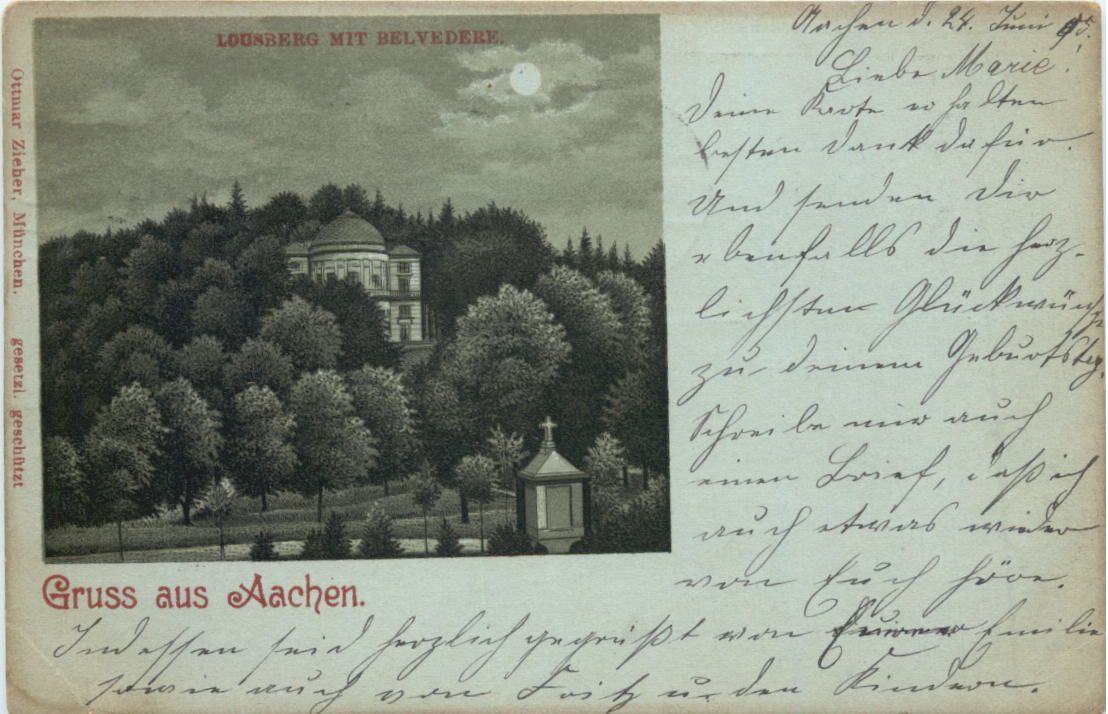 LOUSBERG MIT BELVEDERE.
Ottmar Zieher, München. gesetzl. geschützt
Gruss aus Aachen.
Aachen d. 24. Juni
Liebe Marie.
Deine Karte erhalten
besten Dank dafür.
Und senden Dir
ebenfalls die herz-
lichsten Glückwünsche
zu deinem Geburtstag.
Schreibe mir auch
einen Brief, daß ich
auch etwas wieder
von Euch höre.
Indessen seid herzlich gegrüßt von Emilie
sowie auch von Fritz u. den Kindern.